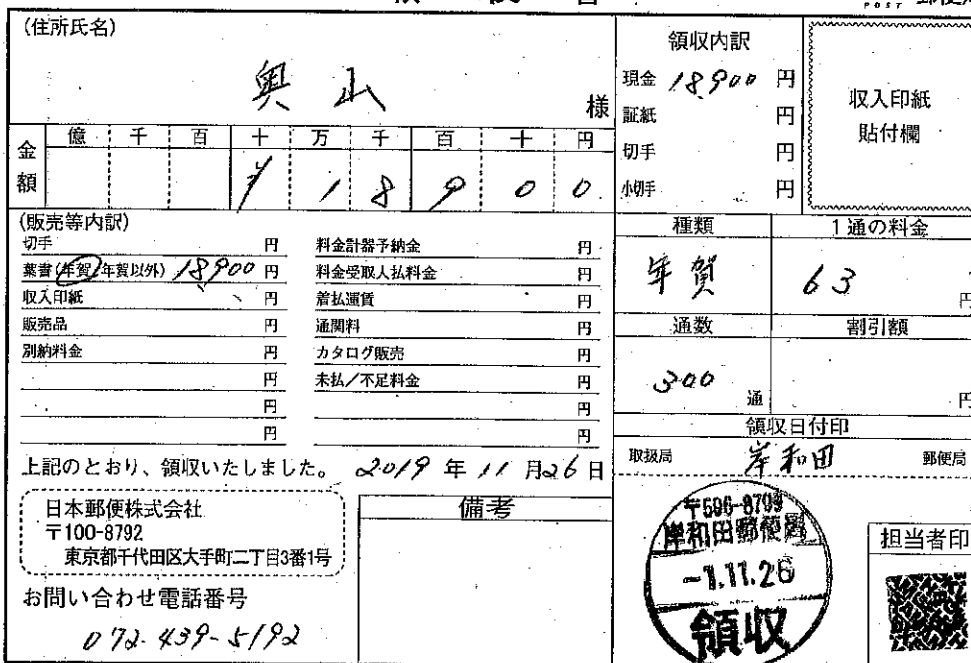 (住所氏名)
奥山 様
金額 億 千 百 十 万 千 百 十 円
¥ 1 8 9 0 0
領収内訳
現金 18,900 円
証紙 円
切手 円
小切手 円
収入印紙
貼付欄
(販売等内訳)
切手 円
葉書(年賀/年賀以外) 18,900 円
収入印紙 円
販売品 円
別納料金 円
円
円
円
料金計器予納金 円
料金受取人払料金 円
着払運賃 円
通関料 円
カタログ販売 円
未払/不足料金 円
円
円
種類 1通の料金
年賀 63 円
通数 割引額
300 通 円
領収日付印
取扱局 岸和田 郵便局
上記のとおり、領収いたしました。 2019 年 11 月 26 日
日本郵便株式会社
〒100-8792
東京都千代田区大手町二丁目3番1号
お問い合わせ電話番号
072-439-5192
備考
〒596-8799
岸和田郵便局
-1.11.26
領収
担当者印